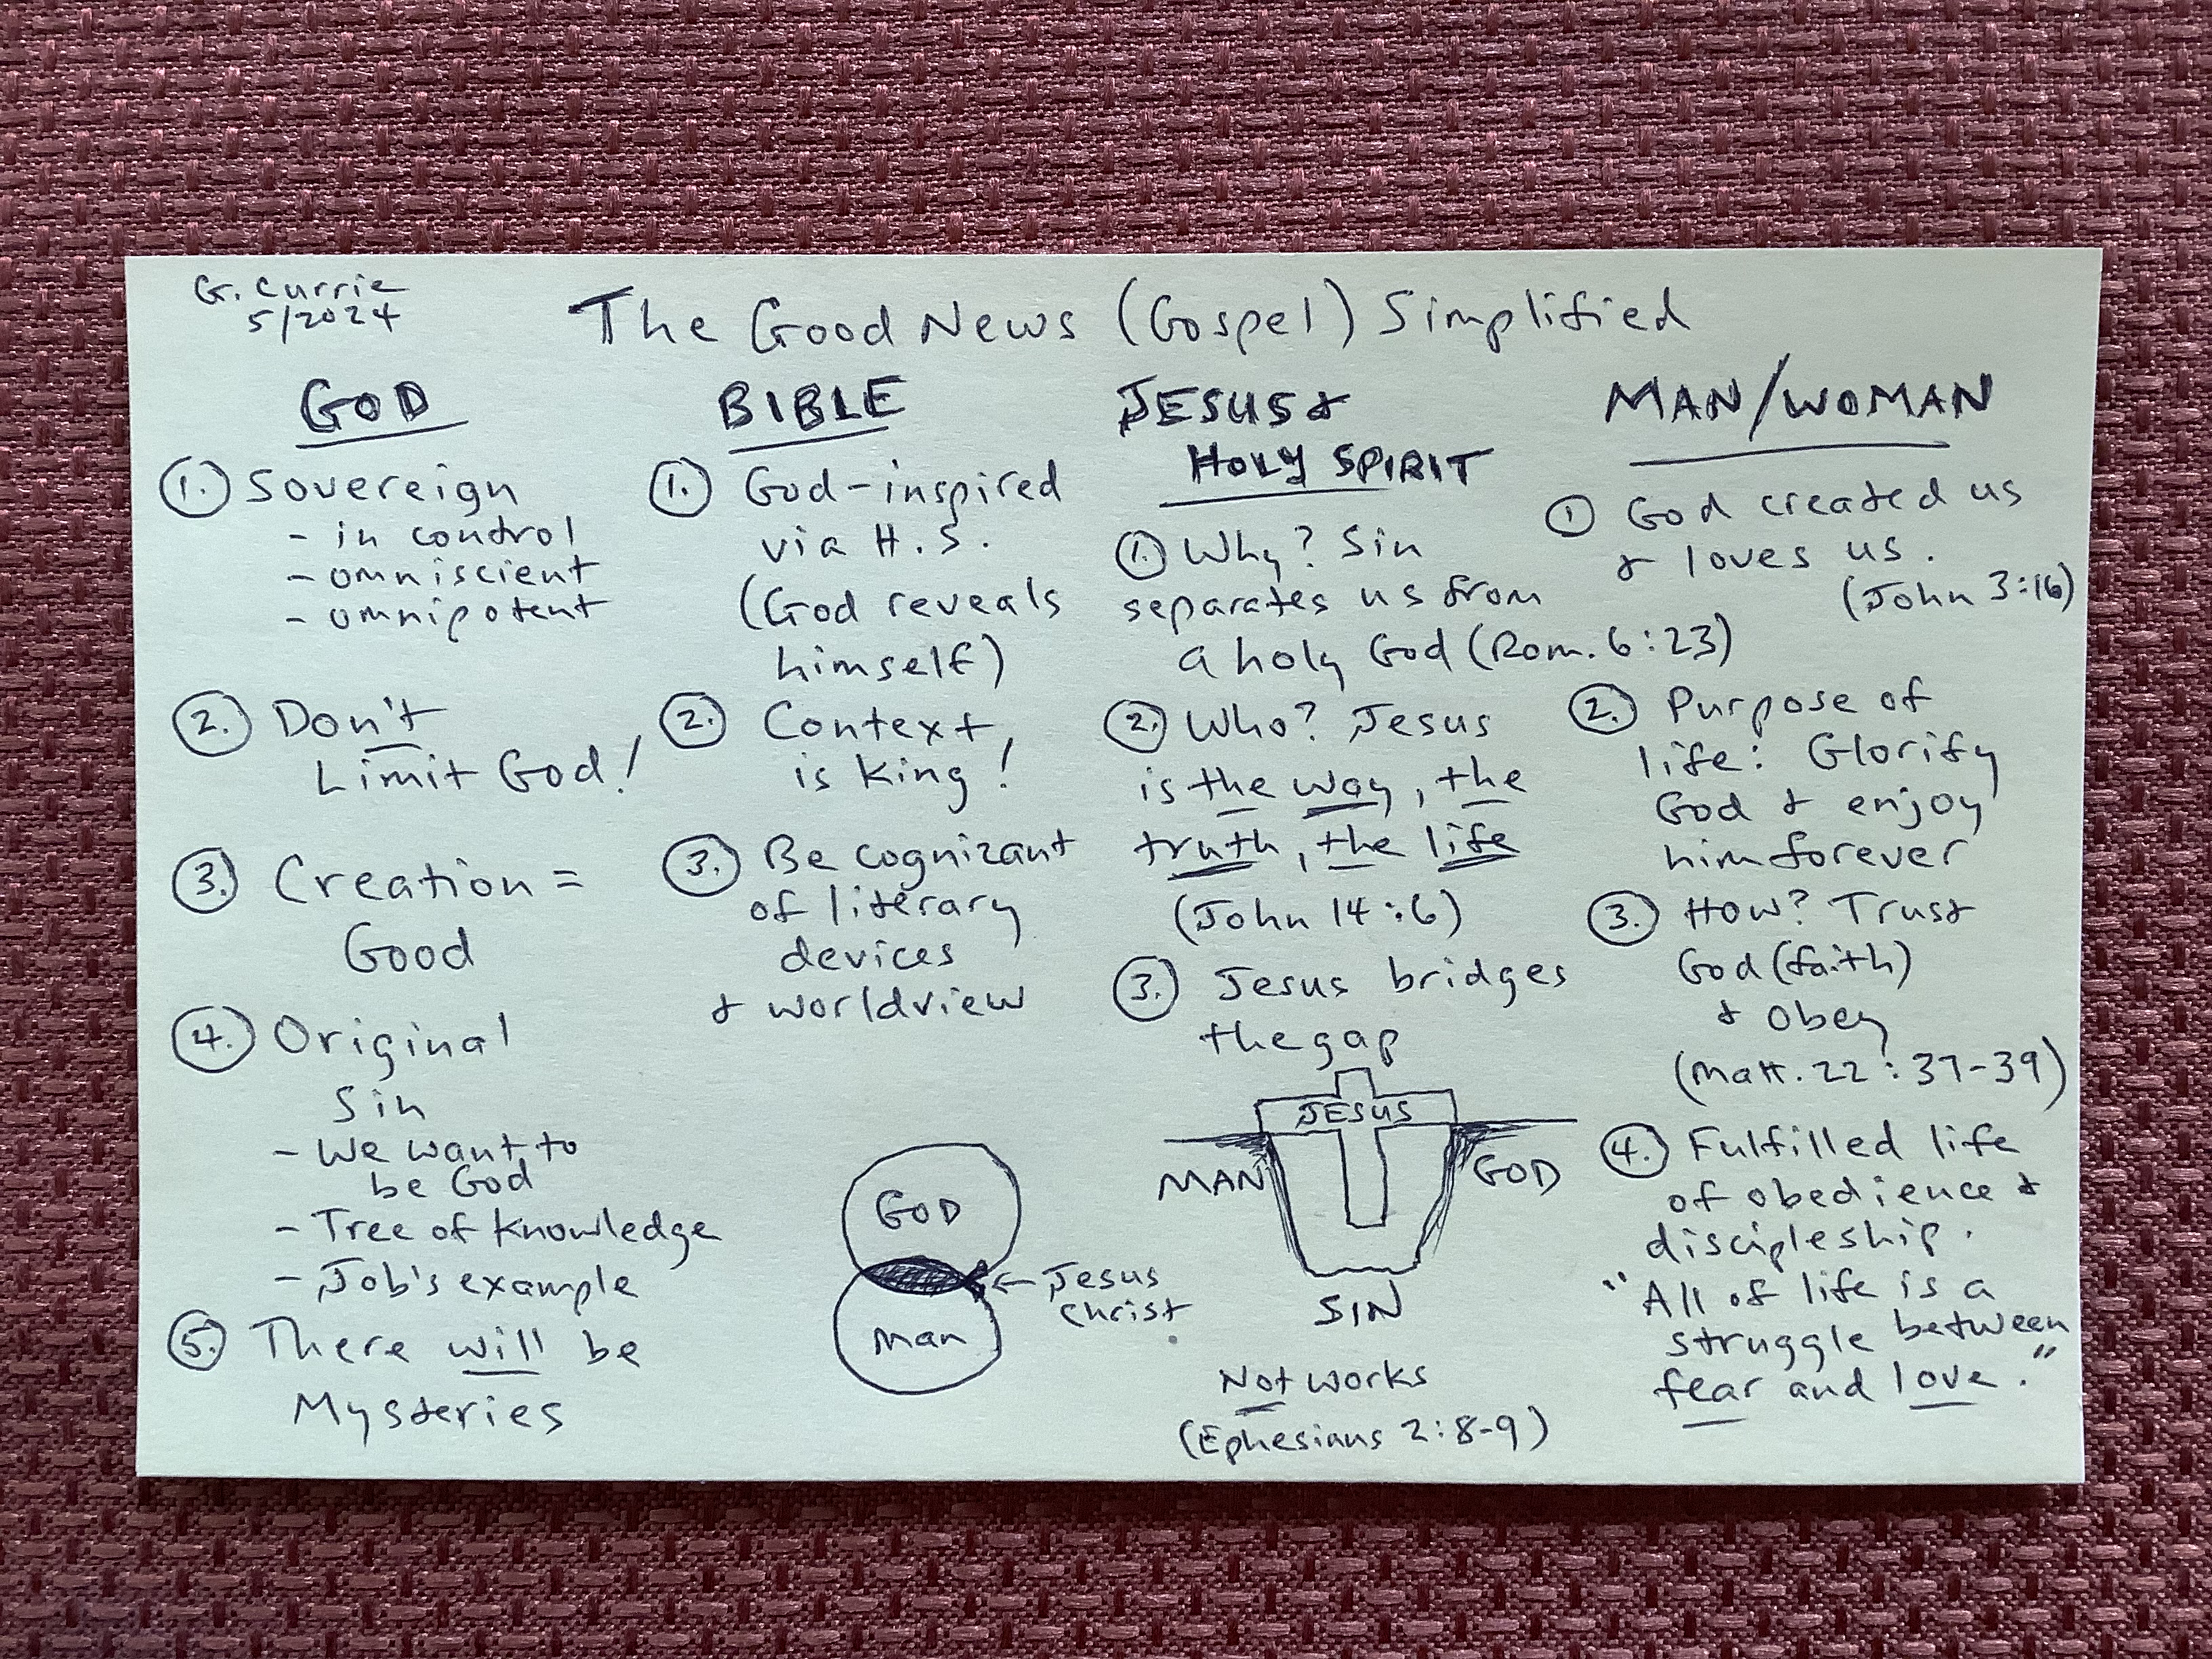 G. Currie
5/2024
The Good News (Gospel) Simplified
GOD
1. Sovereign
- in control
- omniscient
- omnipotent
2. Don't
Limit God!
3. Creation =
Good
4. Original
Sin
- We want to
be God
- Tree of Knowledge
- Job's example
5. There will be
Mysteries
BIBLE
1. God-inspired
via H.S.
(God reveals
himself)
2. Context
is King!
3. Be cognizant
of literary
devices
& worldview
GOD
Man
← Jesus
Christ
JESUS &
HOLY SPIRIT
1. Why? Sin
separates us from
a holy God (Rom. 6:23)
2. Who? Jesus
is the way, the
truth, the life
(John 14:6)
3. Jesus bridges
the gap
JESUS
MAN GOD
SIN
Not works
(Ephesians 2:8-9)
MAN/WOMAN
1 God created us
& loves us.
(John 3:16)
2. Purpose of
life: Glorify
God & enjoy
him forever
3. How? Trust
God (faith)
& obey
(Matt. 22:37-39)
4. Fulfilled life
of obedience &
discipleship.
"All of life is a
struggle between
fear and love."